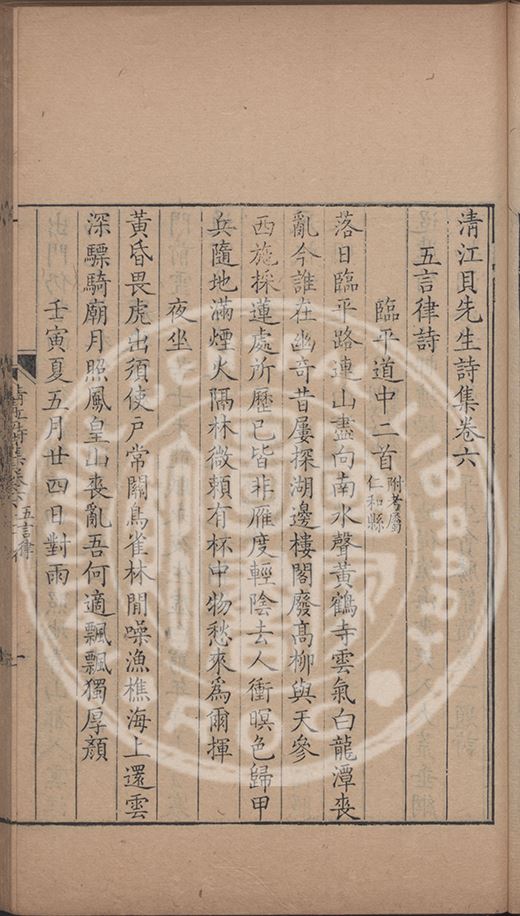 清江貝先生詩集卷六
五言律詩
臨平道中二首附考屬仁和縣
落日臨平路連山盡向南水聲黃鶴寺雲氣白龍潭喪
亂今誰在幽奇昔屢探湖邊樓閣廢高柳與天參
西施採蓮處所歷已皆非雁度輕陰去人衝暝色歸甲
兵隨地滿煙火隔林微頼有杯中物愁來爲爾揮
夜坐
黃昏畏虎出須使戶常關鳥雀林間噪漁樵海上還雲
深驃騎廟月照鳳皇山喪亂吾何適飄飄獨厚顏
壬寅夏五月廿四日對雨
清江詩集卷六 五言律